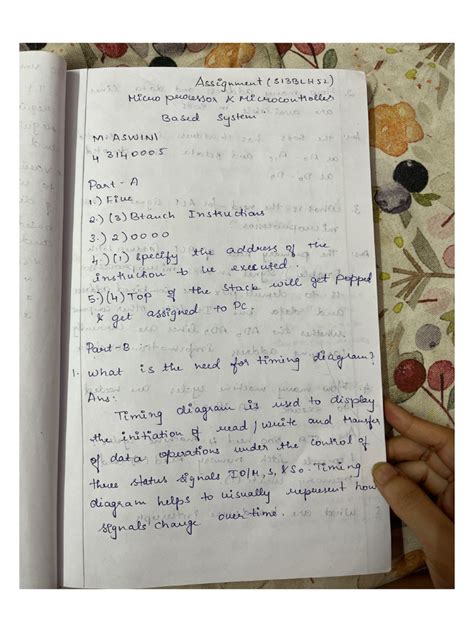 Assignment (S13BLH52)
Microprocessor & Microcontroller
Based System
M. ASWINI
43140005
Part-A
1.) Five
2.) (3) Branch Instructions
3.) 2) 0000
4.) (1) specify the address of the
instruction to be executed.
5.) (4) Top of the stack will get popped
& get assigned to PC.
Part-B
1. What is the need for timing diagram?
Ans:
Timing diagram is used to display
the initiation of read/write and transfer
of data operations under the control of
three status signals IO/M, S, & S0. Timing
diagram helps to visually represent how
signals change over time.